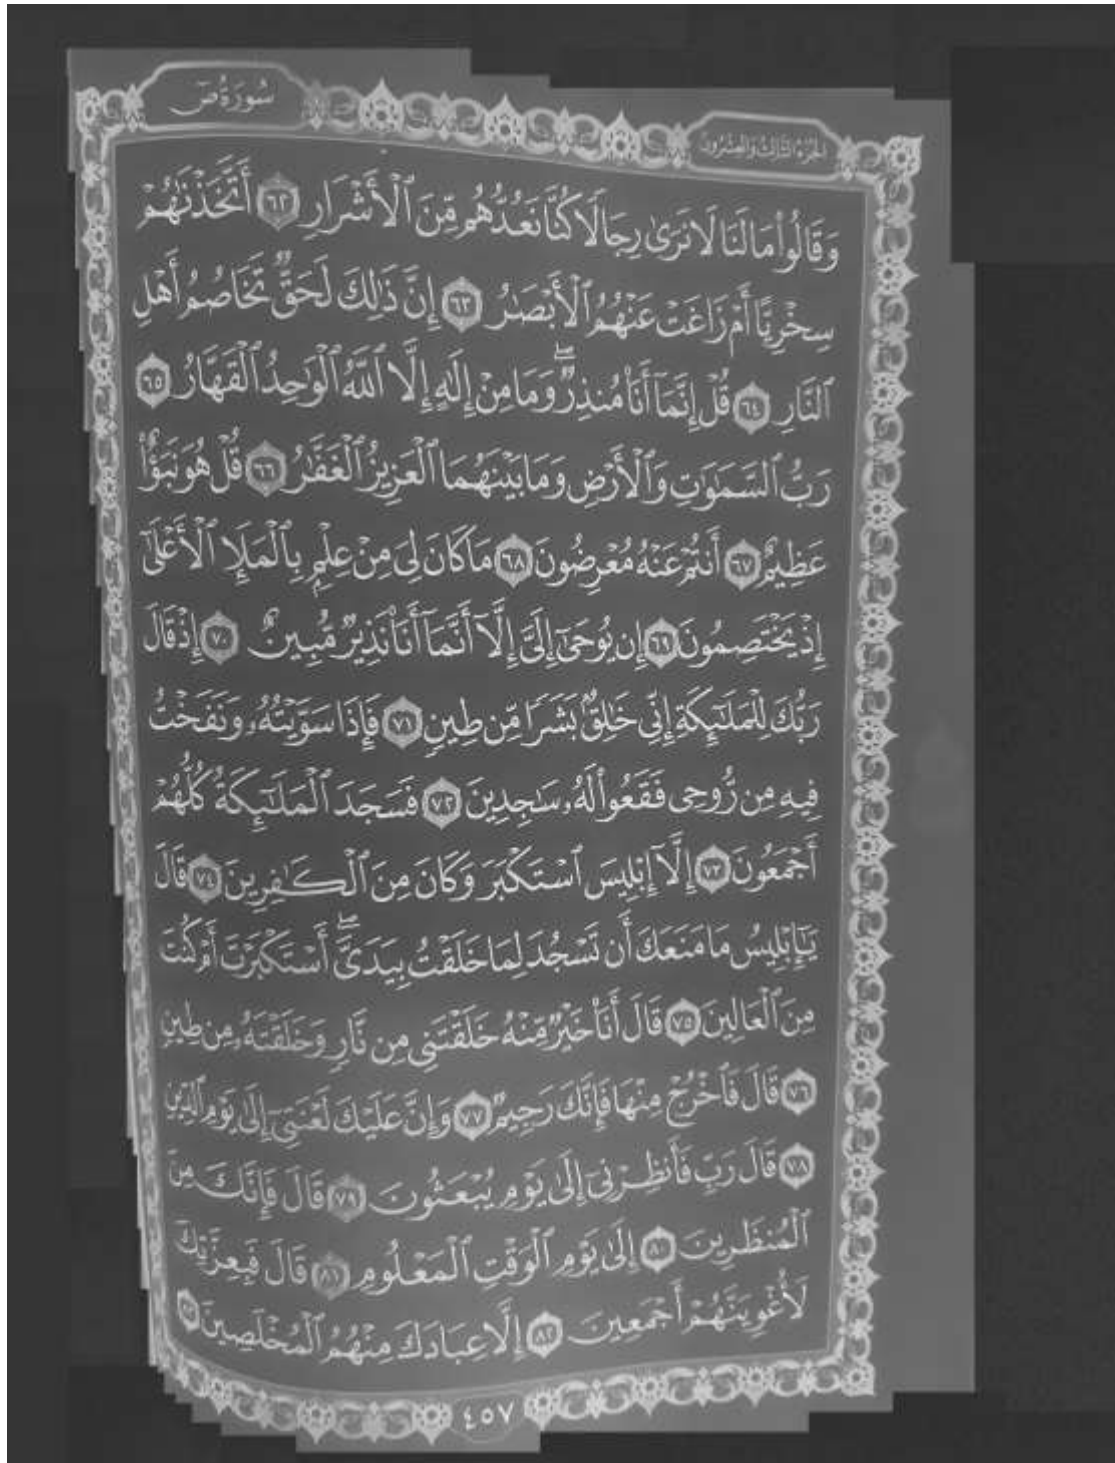 الجزء الثالث والعشرون
سُورَةُ صٓ
وَقَالُوا۟ مَا لَنَا لَا نَرَىٰ رِجَالًا كُنَّا نَعُدُّهُم مِّنَ ٱلْأَشْرَارِ ٦٢ أَتَّخَذْنَـٰهُمْ
سِخْرِيًّا أَمْ زَاغَتْ عَنْهُمُ ٱلْأَبْصَـٰرُ ٦٣ إِنَّ ذَٰلِكَ لَحَقٌّ تَخَاصُمُ أَهْلِ
ٱلنَّارِ ٦٤ قُلْ إِنَّمَآ أَنَا۠ مُنذِرٌ ۖ وَمَا مِنْ إِلَـٰهٍ إِلَّا ٱللَّهُ ٱلْوَٰحِدُ ٱلْقَهَّارُ ٦٥
رَبُّ ٱلسَّمَـٰوَٰتِ وَٱلْأَرْضِ وَمَا بَيْنَهُمَا ٱلْعَزِيزُ ٱلْغَفَّـٰرُ ٦٦ قُلْ هُوَ نَبَؤٌا۟
عَظِيمٌ ٦٧ أَنتُمْ عَنْهُ مُعْرِضُونَ ٦٨ مَا كَانَ لِىَ مِنْ عِلْمٍۭ بِٱلْمَلَإِ ٱلْأَعْلَىٰٓ
إِذْ يَخْتَصِمُونَ ٦٩ إِن يُوحَىٰٓ إِلَىَّ إِلَّآ أَنَّمَآ أَنَا۠ نَذِيرٌ مُّبِينٌ ٧٠ إِذْ قَالَ
رَبُّكَ لِلْمَلَـٰٓئِكَةِ إِنِّى خَـٰلِقٌۢ بَشَرًا مِّن طِينٍ ٧١ فَإِذَا سَوَّيْتُهُۥ وَنَفَخْتُ
فِيهِ مِن رُّوحِى فَقَعُوا۟ لَهُۥ سَـٰجِدِينَ ٧٢ فَسَجَدَ ٱلْمَلَـٰٓئِكَةُ كُلُّهُمْ
أَجْمَعُونَ ٧٣ إِلَّآ إِبْلِيسَ ٱسْتَكْبَرَ وَكَانَ مِنَ ٱلْكَـٰفِرِينَ ٧٤ قَالَ
يَـٰٓإِبْلِيسُ مَا مَنَعَكَ أَن تَسْجُدَ لِمَا خَلَقْتُ بِيَدَىَّ ۖ أَسْتَكْبَرْتَ أَمْ كُنتَ
مِنَ ٱلْعَالِينَ ٧٥ قَالَ أَنَا۠ خَيْرٌ مِّنْهُ خَلَقْتَنِى مِن نَّارٍ وَخَلَقْتَهُۥ مِن طِينٍ
٧٦ قَالَ فَٱخْرُجْ مِنْهَا فَإِنَّكَ رَجِيمٌ ٧٧ وَإِنَّ عَلَيْكَ لَعْنَتِىٓ إِلَىٰ يَوْمِ ٱلدِّينِ
٧٨ قَالَ رَبِّ فَأَنظِرْنِىٓ إِلَىٰ يَوْمِ يُبْعَثُونَ ٧٩ قَالَ فَإِنَّكَ مِنَ
ٱلْمُنظَرِينَ ٨٠ إِلَىٰ يَوْمِ ٱلْوَقْتِ ٱلْمَعْلُومِ ٨١ قَالَ فَبِعِزَّتِكَ
لَأُغْوِيَنَّهُمْ أَجْمَعِينَ ٨٢ إِلَّا عِبَادَكَ مِنْهُمُ ٱلْمُخْلَصِينَ ٨٣
٤٥٧